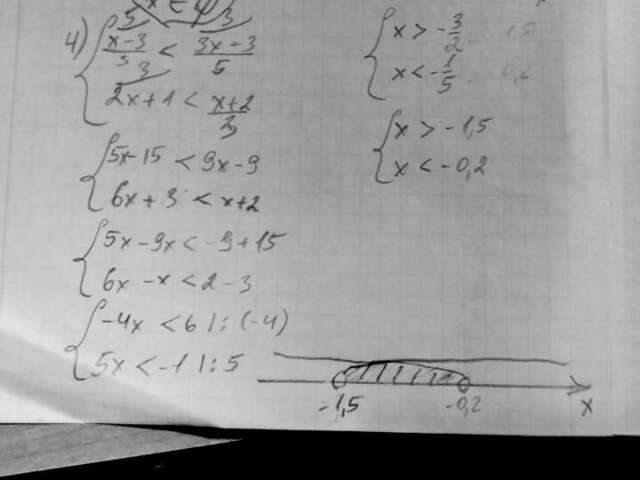 4) { (x-3)/3 < (3x-3)/5
2x+1 < (x+2)/3
{ 5x-15 < 9x-9
6x+3 < x+2
{ 5x-9x < -9+15
6x-x < 2-3
{ -4x < 6 |:(-4)
5x < -1 |:5
{ x > -3/2 = 1,5
x < -1/5 = 0,2
{ x > -1,5
x < -0,2
-1,5 -0,2 x